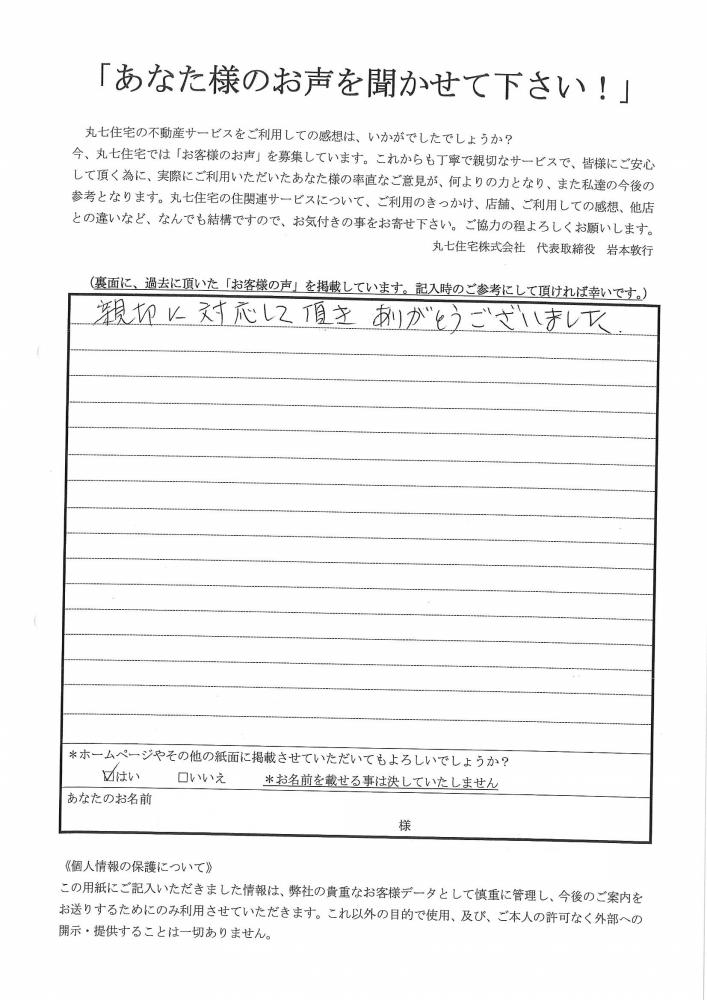 「あなた様のお声を聞かせて下さい！」
丸七住宅の不動産サービスをご利用しての感想は、いかがでしたでしょうか？
今、丸七住宅では「お客様のお声」を募集しています。これからも丁寧で親切なサービスで、皆様にご安心
して頂く為に、実際にご利用いただいたあなた様の率直なご意見が、何よりの力となり、また私達の今後の
参考となります。丸七住宅の住関連サービスについて、ご利用のきっかけ、店舗、ご利用しての感想、他店
との違いなど、なんでも結構ですので、お気付きの事をお寄せ下さい。ご協力の程よろしくお願いします。
丸七住宅株式会社　代表取締役　岩本敦行
（裏面に、過去に頂いた「お客様の声」を掲載しています。記入時のご参考にして頂ければ幸いです。）
親切に対応して頂きありがとうございました.
＊ホームページやその他の紙面に掲載させていただいてもよろしいでしょうか？
☑はい　□いいえ　＊お名前を載せる事は決していたしません
あなたのお名前
様
《個人情報の保護について》
この用紙にご記入いただきました情報は、弊社の貴重なお客様データとして慎重に管理し、今後のご案内を
お送りするためにのみ利用させていただきます。これ以外の目的で使用、及び、ご本人の許可なく外部への
開示・提供することは一切ありません。